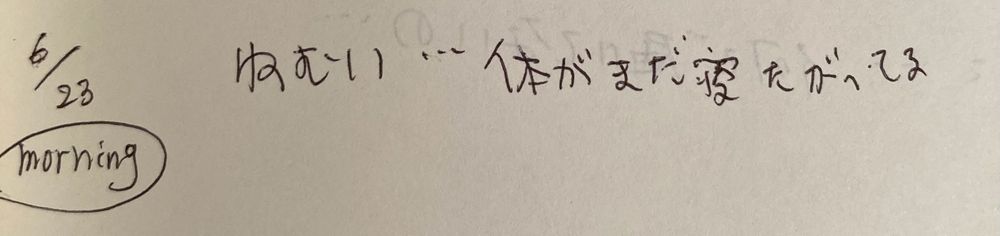 6/23
ねむい … 体がまだ寝たがってる
morning